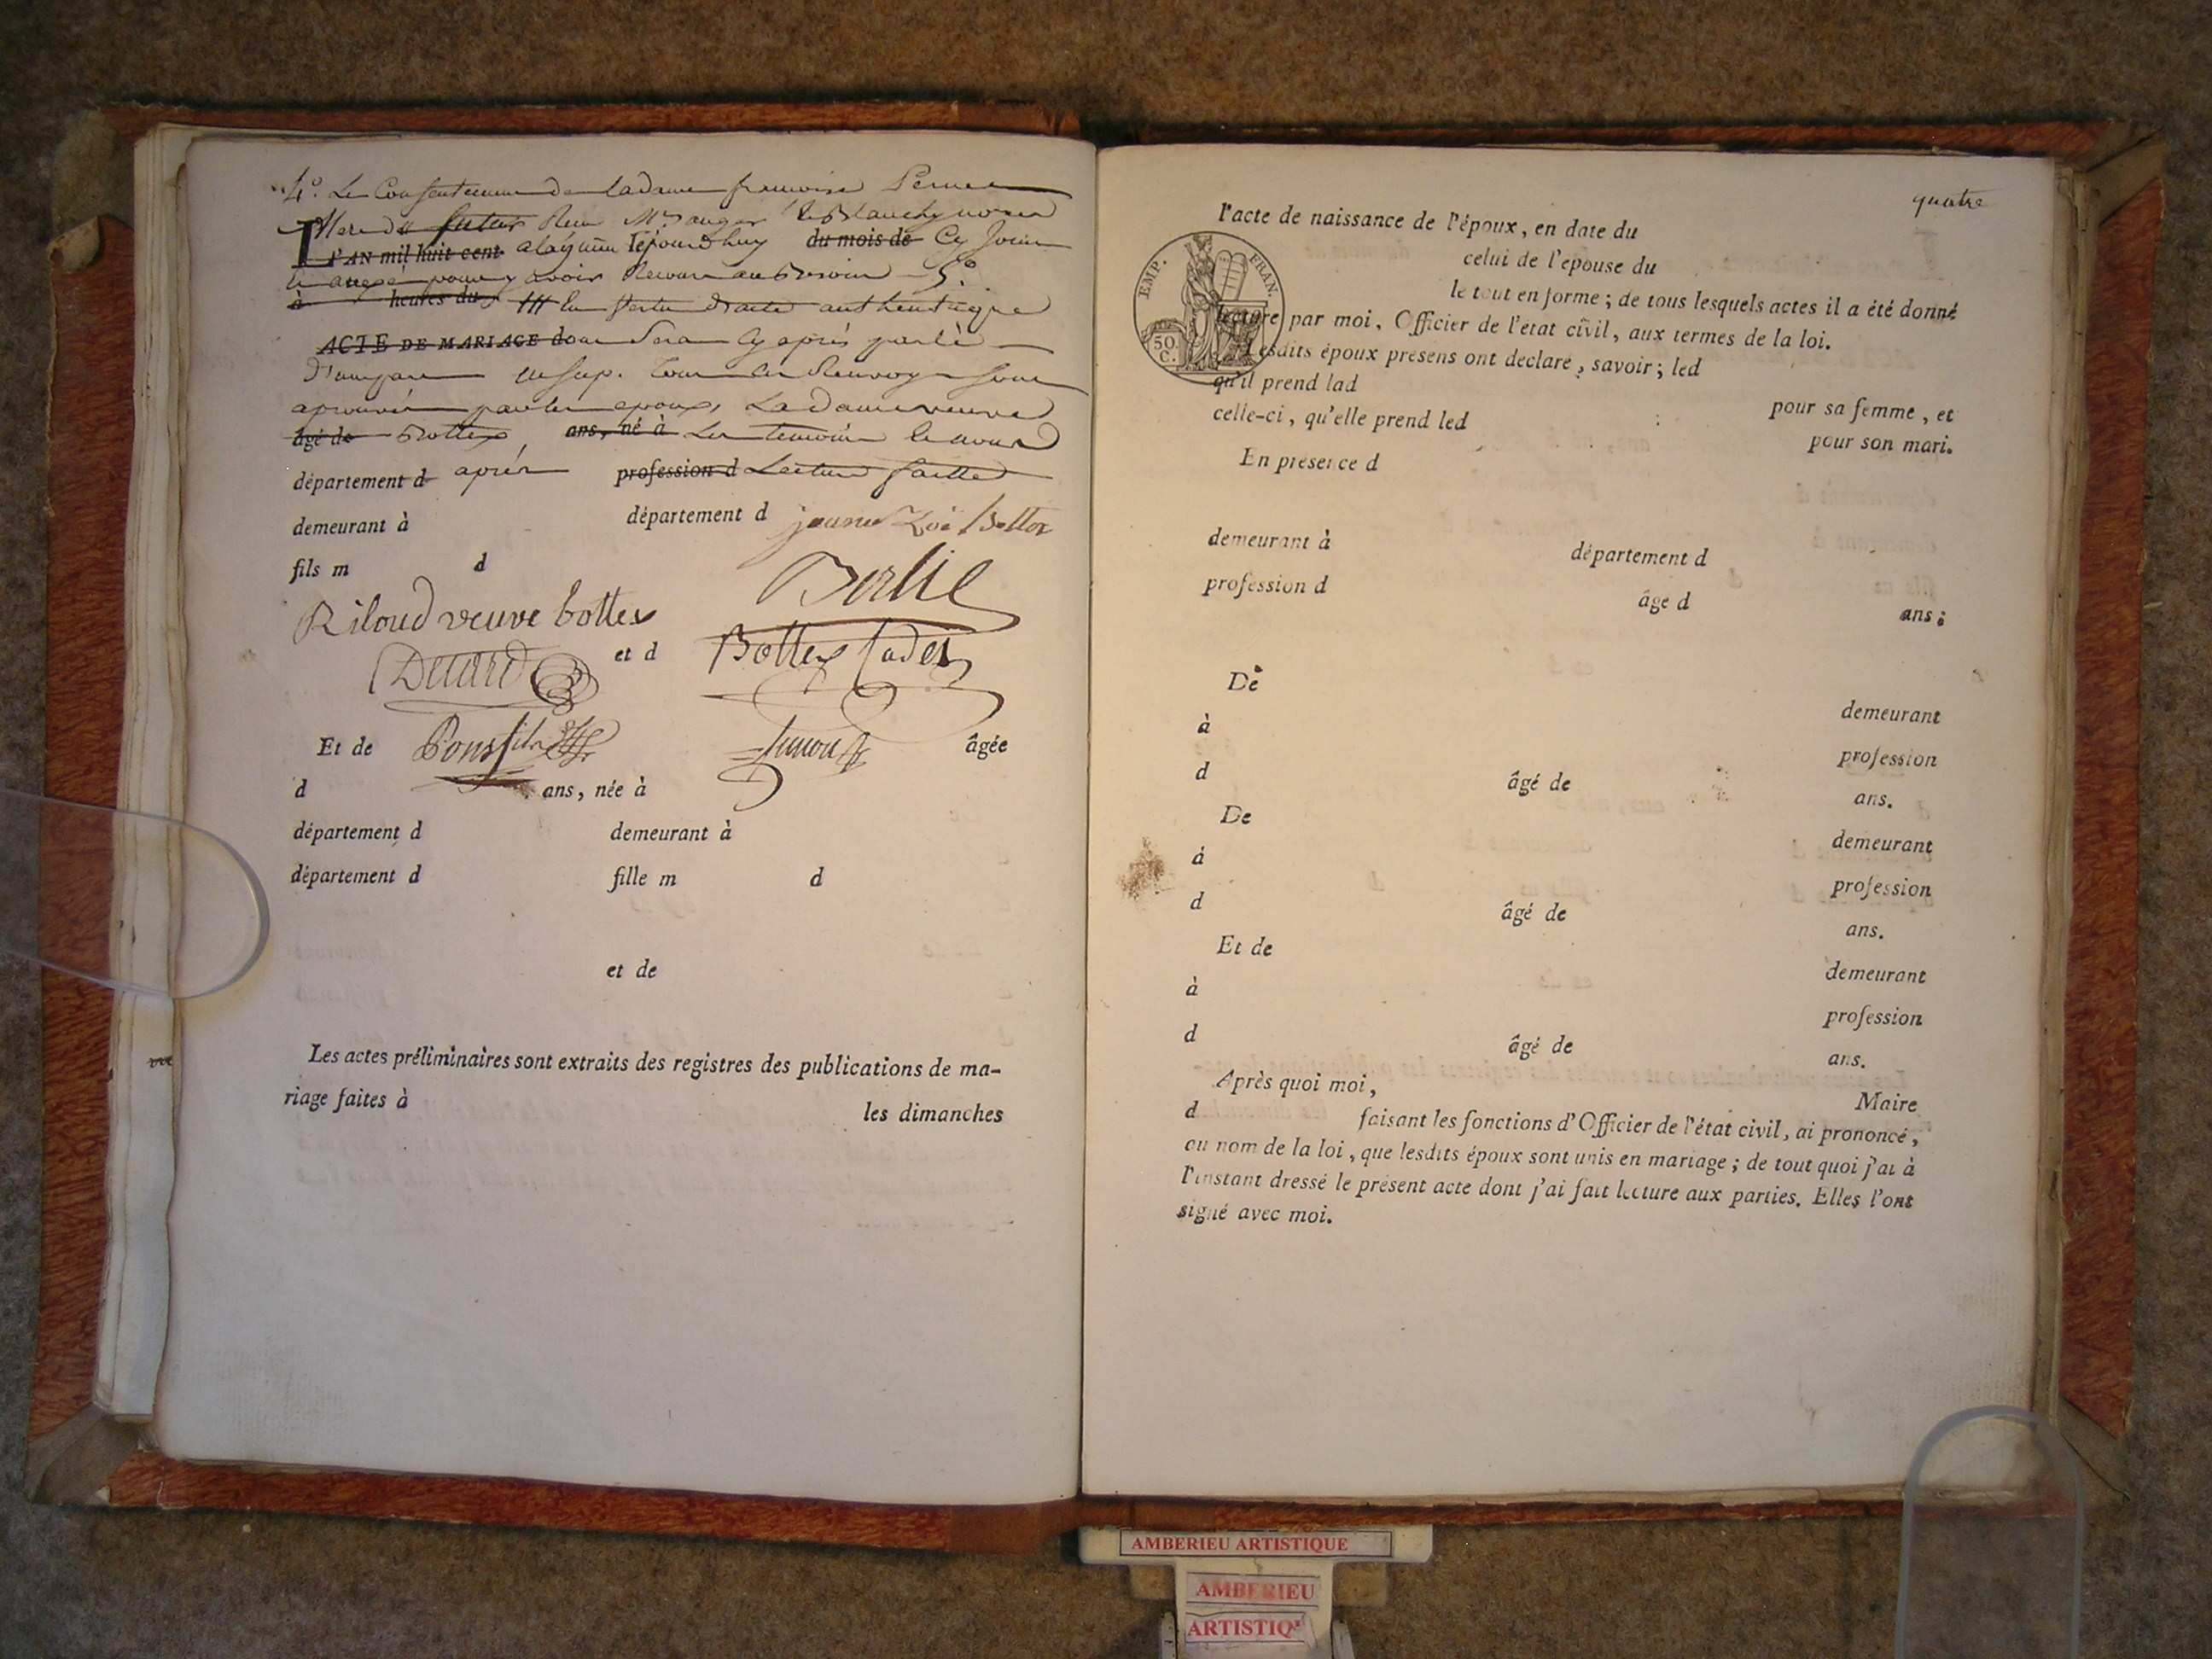 4.° Le Consentement de la dame francoise
Mere du futur
L'AN mil huit cent du mois de Cy Joint
pour y avoir Recours au Besoin 5.°
à heures du En Vertu d'acte authentique
ACTE DE MARIAGE dont Sera Cy après parlé
D'une part
aprouvés par les epoux, La dame veuve
âgé de Bottex, ans, né à Les temoins
département d après profession d Lecture faitte
demeurant à département d Zoé Bottex
fils m d
Berlie
Riloud veuve bottex
et d Bottex Cadet
Et de Pons fils âgée
d ans, née à
département d demeurant à
département d fille m d
et de
Les actes préliminaires sont extraits des registres des publications de ma-
riage faites à les dimanches
quatre
l'acte de naissance de l'époux, en date du
celui de l'epouse du
EMP. FRAN.
50. C.
le tout en forme ; de tous lesquels actes il a été donné
lecture par moi, Officier de l'état civil, aux termes de la loi.
Lesdits époux présens ont déclaré, savoir ; led
qu'il prend lad pour sa femme, et
celle-ci, qu'elle prend led pour son mari.
En présence d
demeurant à département d
profession d âge d ans ;
De demeurant
à profession
d âgé de ans.
De demeurant
à profession
d âgé de ans.
Et de demeurant
à profession
d âgé de ans.
Après quoi moi, Maire
d faisant les fonctions d'Officier de l'état civil, ai prononcé,
au nom de la loi, que lesdits époux sont unis en mariage ; de tout quoi j'ai à
l'instant dressé le présent acte dont j'ai fait lecture aux parties. Elles l'ont
signé avec moi.
AMBERIEU ARTISTIQUE
AMBERIEU
ARTISTIQ